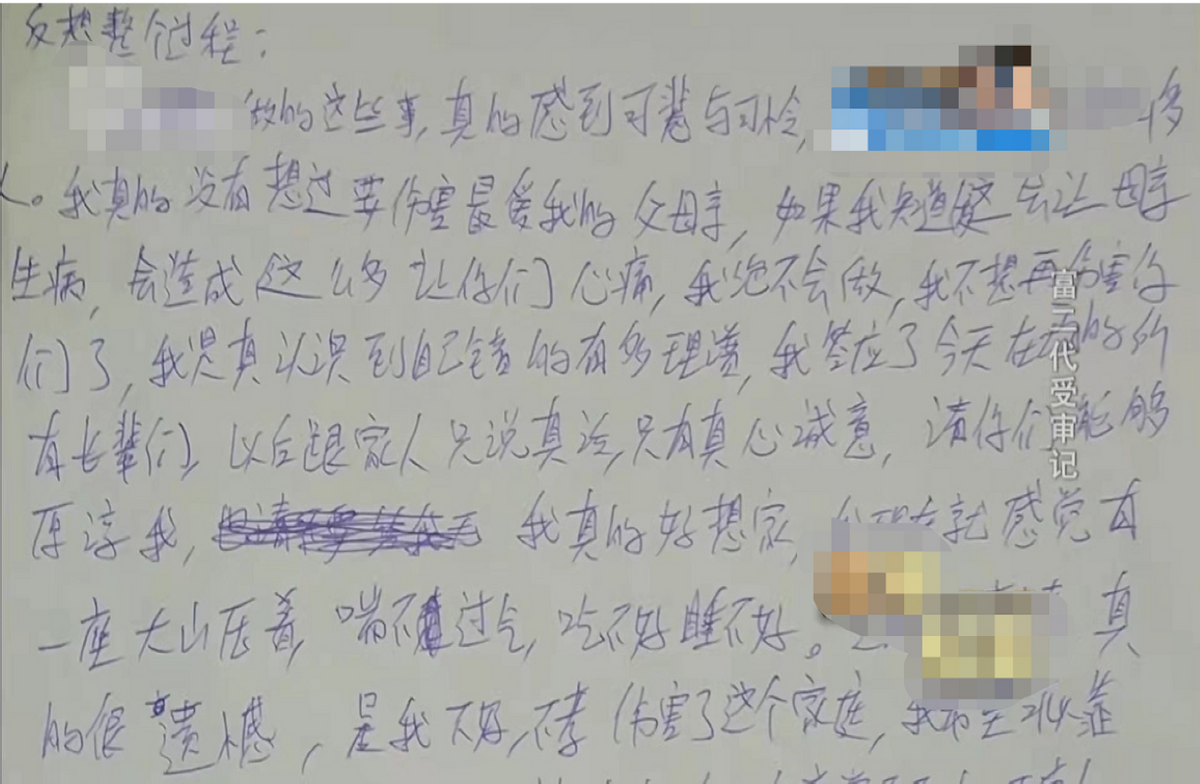 反想整个过程：
做的这些事，真的感到可悲与可怜，
多
人。我真的没有想过要伤害最爱我的父母亲，如果我知道这会让母亲
生病，会造成这么多让你们心痛，我绝不会做，我不想再伤害你
们了，我是真认识到自己错的有多理道，我答应了今天在场的所
有长辈们，以后跟家人只说真话，只有真心诚意，请你们能够
原谅我，我真的好想家，就感觉有
一座大山压着，喘不过气，吃不好睡不好。真
的很遗憾，是我不好，不孝伤害了这个家庭，我希望
富二代受审记